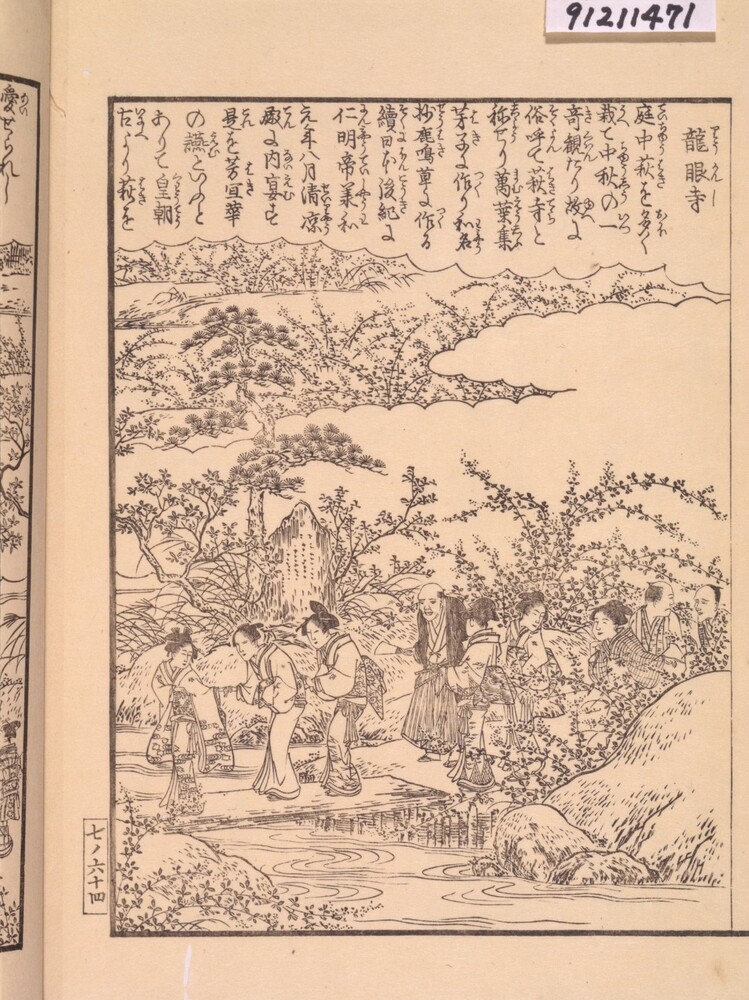 91211471
龍眼寺
庭中萩を多く
栽て中秋の一
奇観たり故に
俗呼て萩寺と
称せり萬葉集
芽子に作り和名
抄鹿鳴草に作る
續日本後紀に
仁明帝承和
元年八月清凉
殿に内宴す
是を芳宜華
の讌といふと
ありて皇朝
古より萩を
愛せられし
七ノ六十四